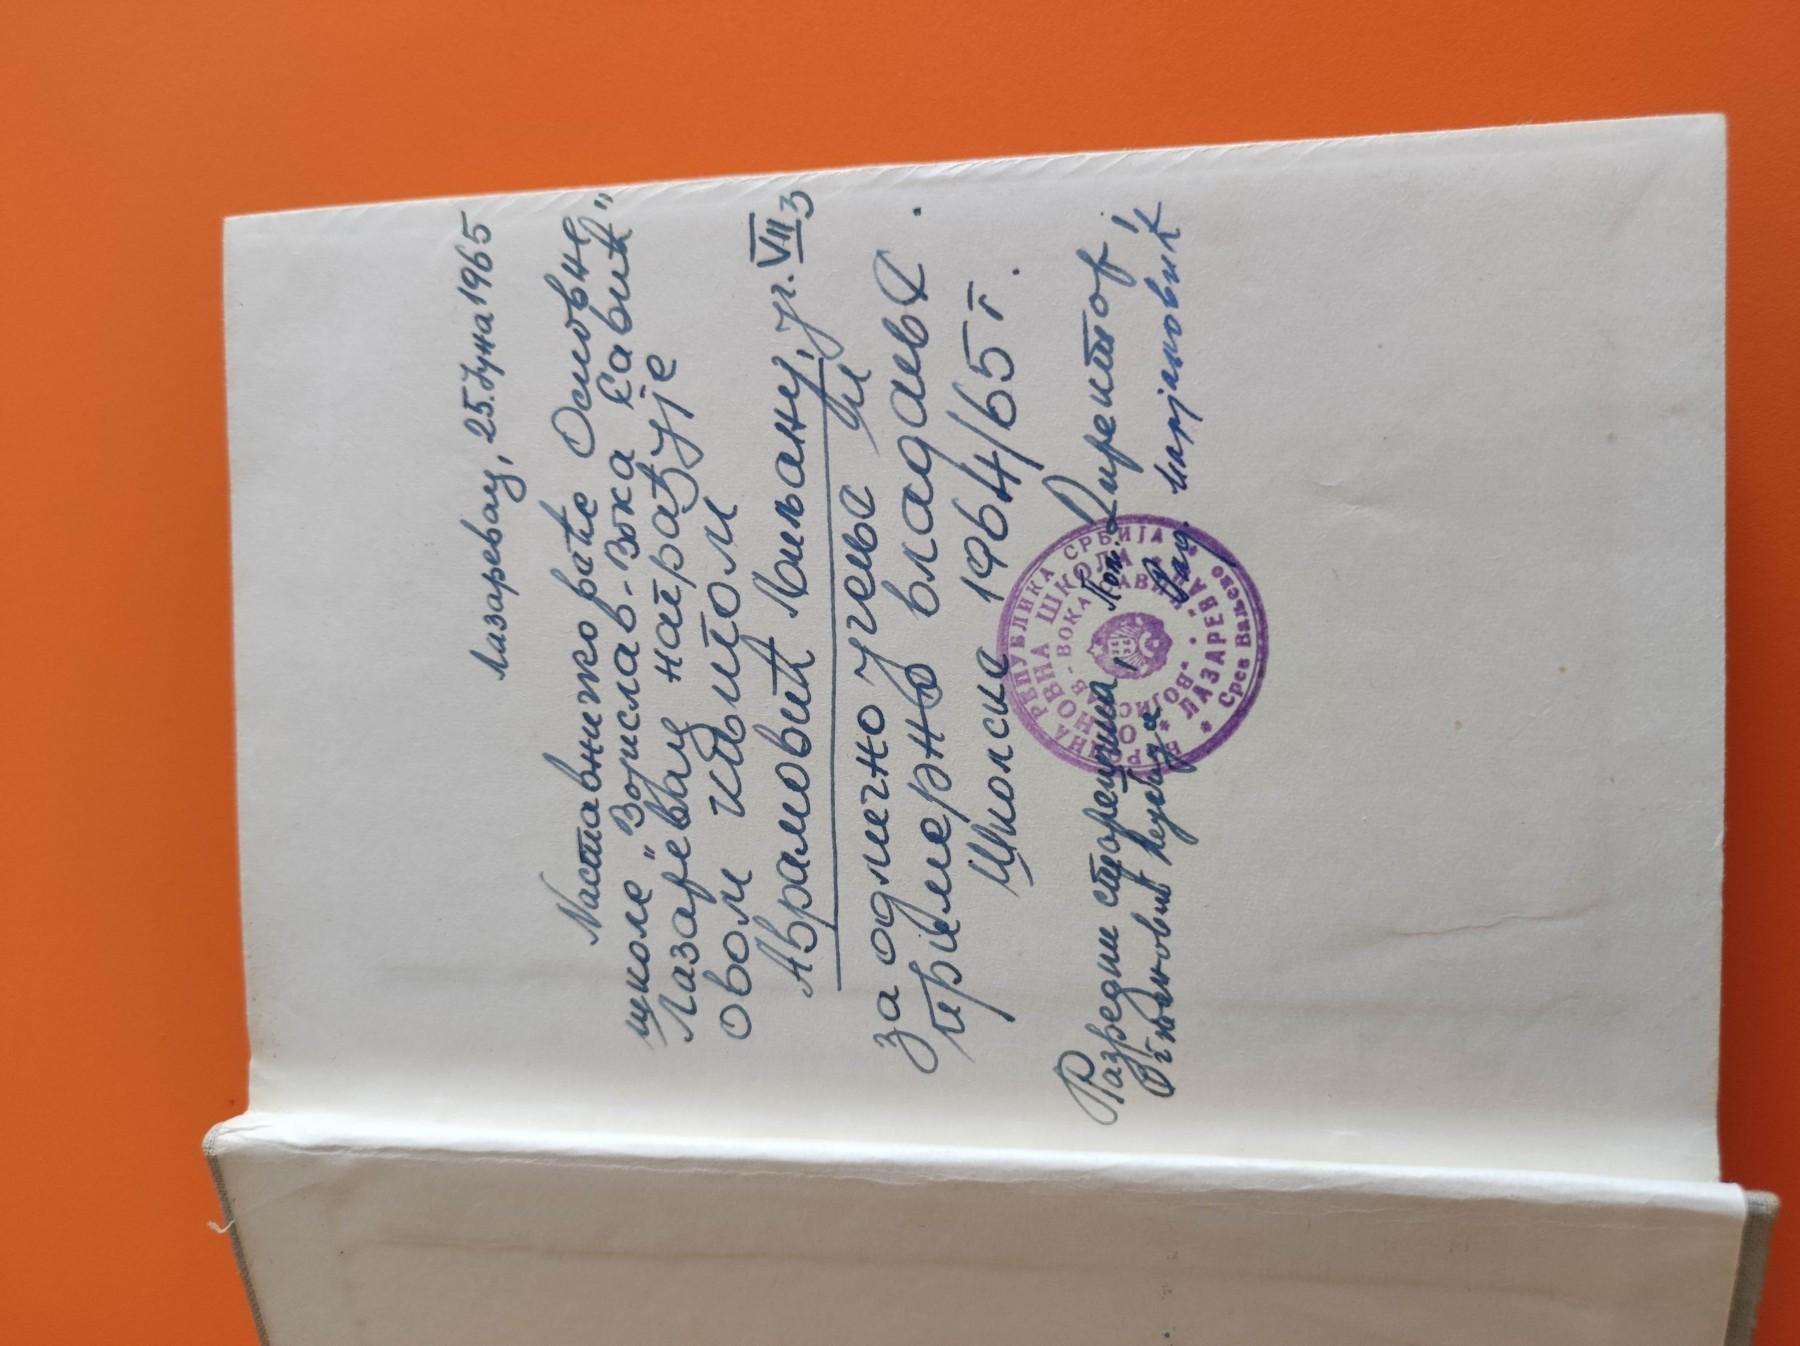 Лазаревац, 25. јуна 1965
Наставничко веће Основне
школе „Војислав-Вока Савић"
Лазаревац награђује
овом књигом
Аврамовић Миљану, уч. VII3
за одлично учење и
примерно владање
Школске 1964/65 г.
Разредни старешина, Пом. Директор,
Огњановић Недељка Рад. Марјановић
РЕПУБЛИКА СРБИЈА
ОСНОВНА ШКОЛА
„ВОЈИСЛАВ - ВОКА САВИЋ"
* ЛАЗАРЕВАЦ *
Срез Ваљево